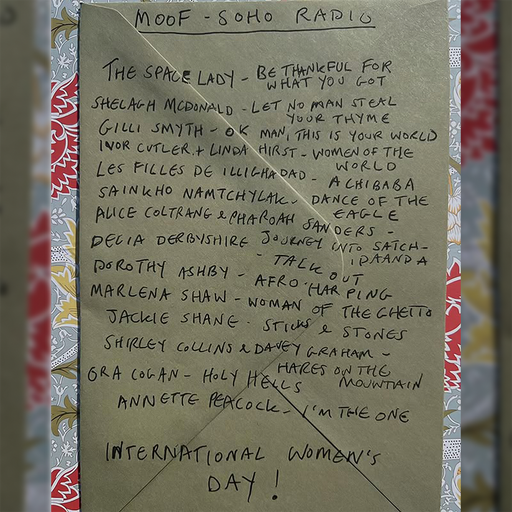 MOOF - SOHO RADIO
THE SPACE LADY - BE THANKFUL FOR
WHAT YOU GOT
SHELAGH MCDONALD - LET NO MAN STEAL
YOUR THYME
GILLI SMYTH - OK MAN, THIS IS YOUR WORLD
IVOR CUTLER + LINDA HIRST - WOMEN OF THE
WORLD
LES FILLES DE ILLIGHADAD - ACHIBABA
SAINKHO NAMTCHYLAK - DANCE OF THE
EAGLE
ALICE COLTRANE & PHAROAH SANDERS -
JOURNEY INTO SATCH-
IDAANDA
DELIA DERBYSHIRE - TALK OUT
DOROTHY ASHBY - AFRO-HARPING
MARLENA SHAW - WOMAN OF THE GHETTO
JACKIE SHANE - STICKS & STONES
SHIRLEY COLLINS & DAVEY GRAHAM -
HARES ON THE
MOUNTAIN
ORA COGAN - HOLY HELLS
ANNETTE PEACOCK - I'M THE ONE
INTERNATIONAL WOMEN'S
DAY!